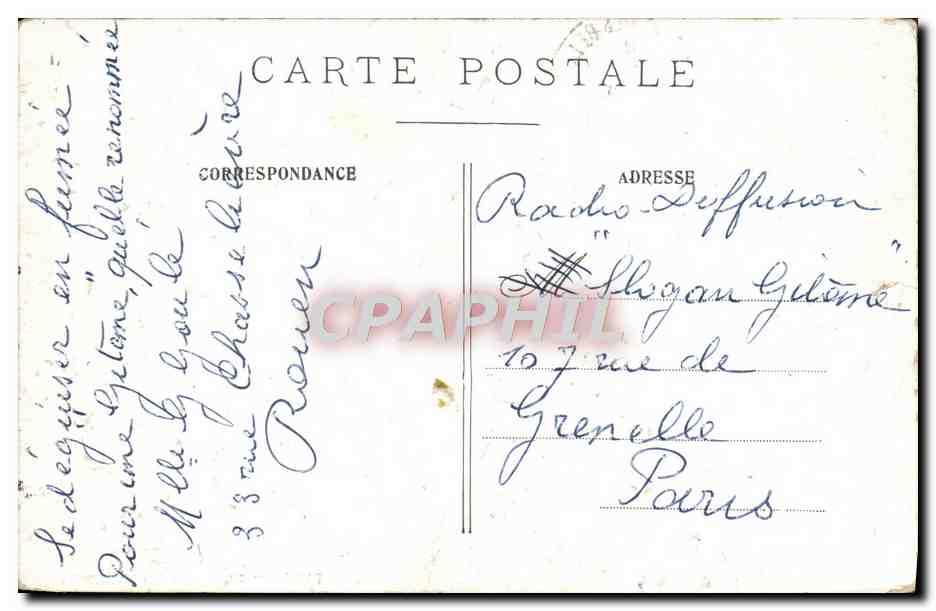 CARTE POSTALE
CORRESPONDANCE
Se déguiser en fumée
Pour une Gitane, quelle renommée
Melle Goulé
33 rue Chasselièvre
Rouen
ADRESSE
Radio-Diffusion
"Slogan Gitane"
107 rue de
Grenelle
Paris
CPAPHIL